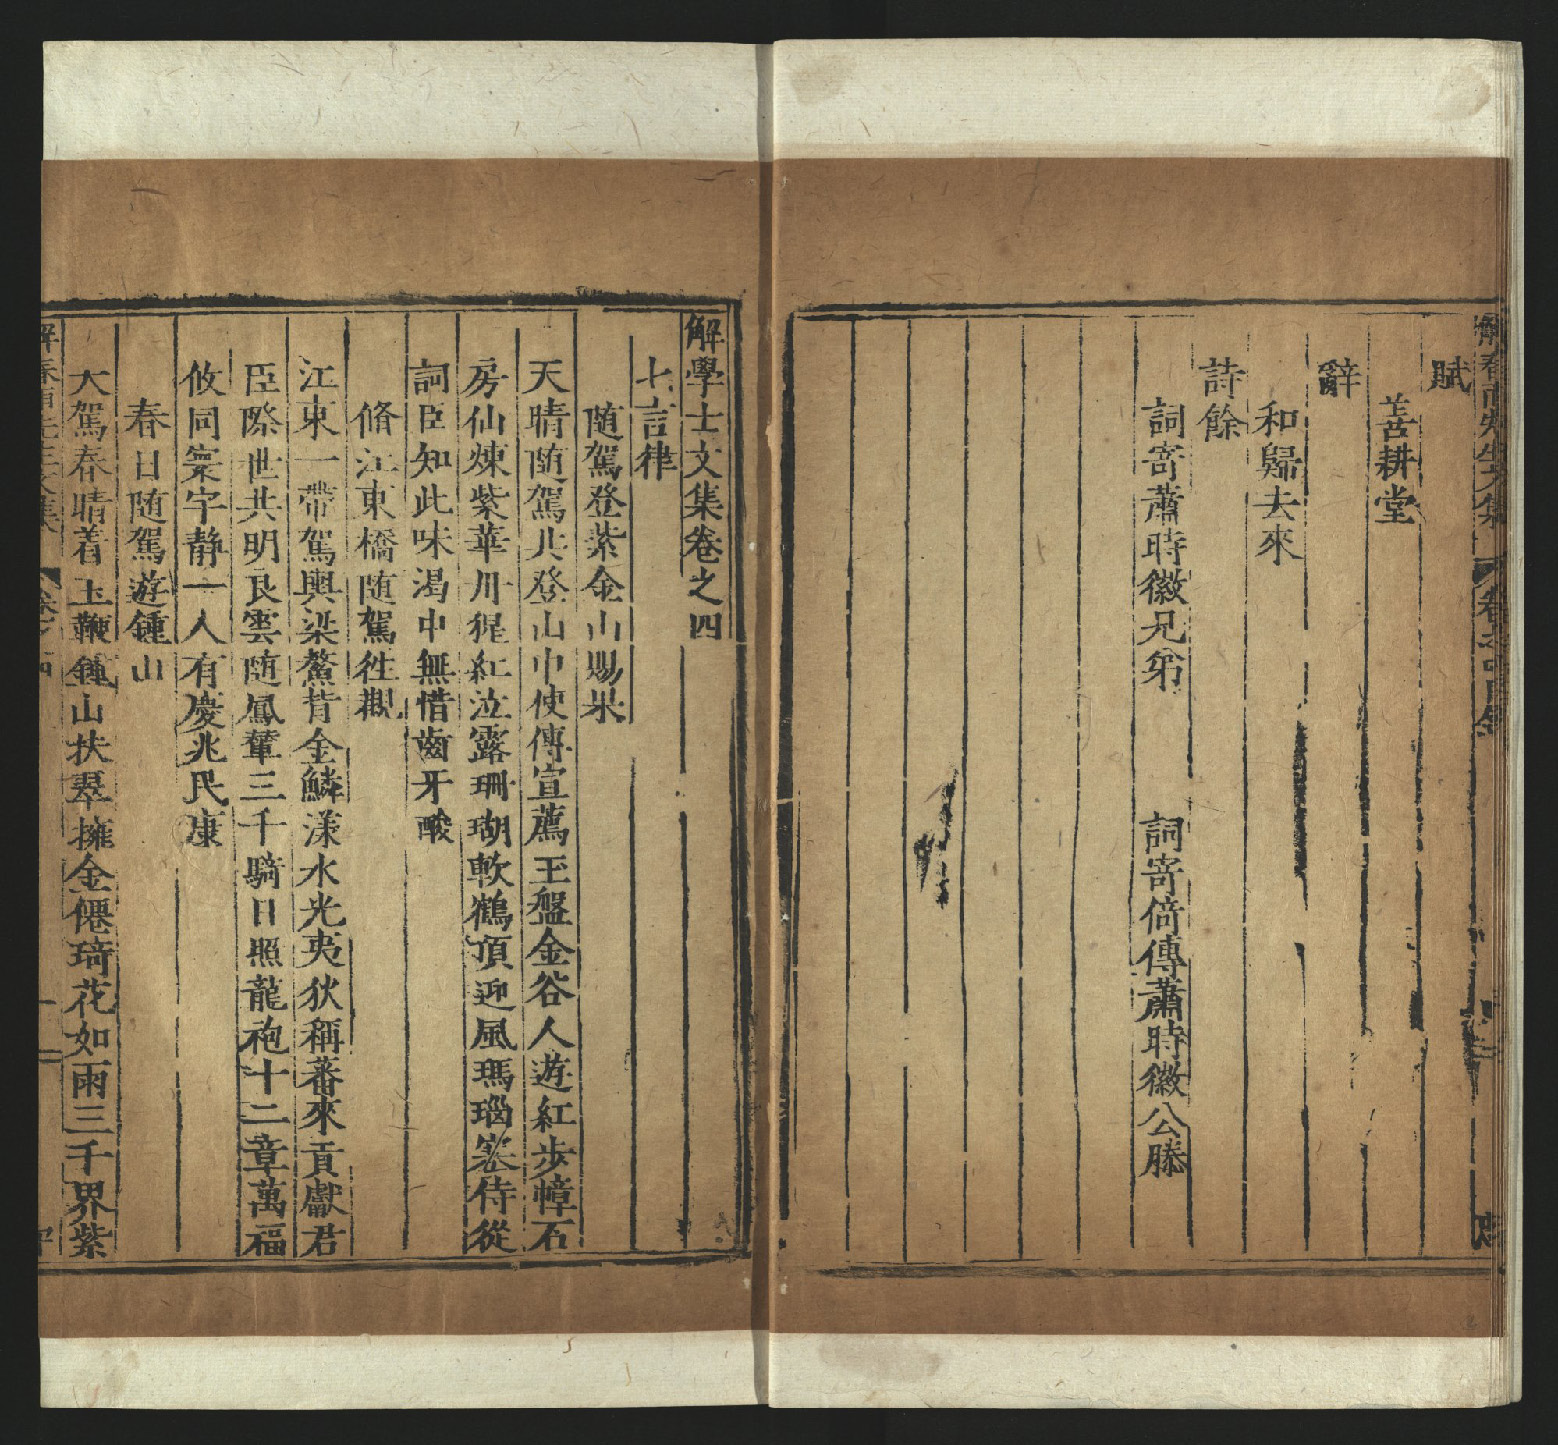 賦
善耕堂
辭
和歸去來
詩餘
詞寄蕭時徽兄弟　詞寄倚傳蕭時徽公滕
解學士文集卷之四
七言律
随駕登紫金山賜果
天晴随駕共登山中使傳宣薦玉盤金谷人遊紅步幛石
房仙煉紫華丹猩紅泣露珊瑚軟鶴頂迎風瑪瑙寒侍從
詞臣知此味渴中無惜齒牙酸
脩江東橋随駕徃觀
江東一帶駕輿梁鰲背金鱗漾水光夷狄稱蕃來貢獻君
臣際世共明良雲随鳳輦三千騎日照龍袍十二章萬福
攸同寰宇静一人有慶兆民康
春日随駕遊鍾山
大駕春晴着玉鞭鍾山扶翠擁金僊琦花如雨三千界紫